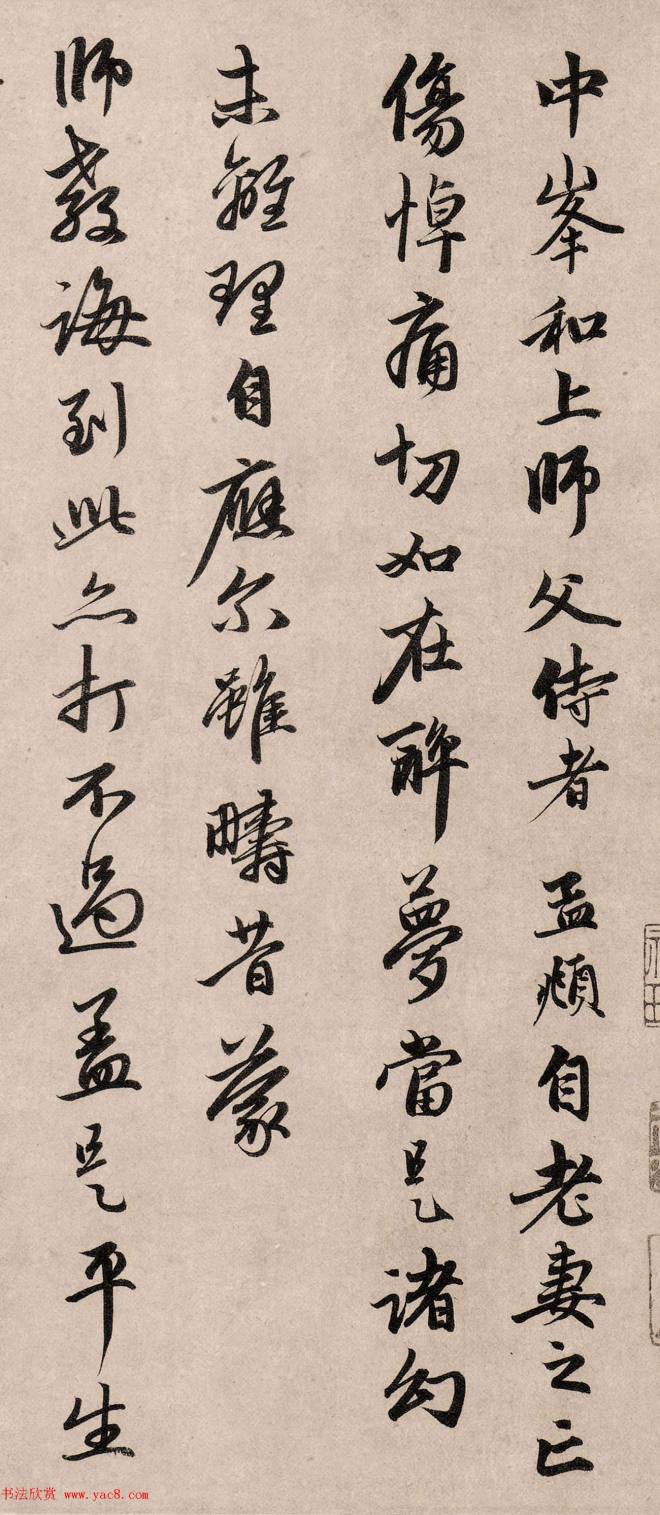 中峯和上師父侍者孟頫自老妻之亡
傷悼痛切如在醉夢當是諸幻
未離理自應尔雖疇昔蒙
師教誨到此亦打不過盖是平生
书法欣赏 www.yac8.com